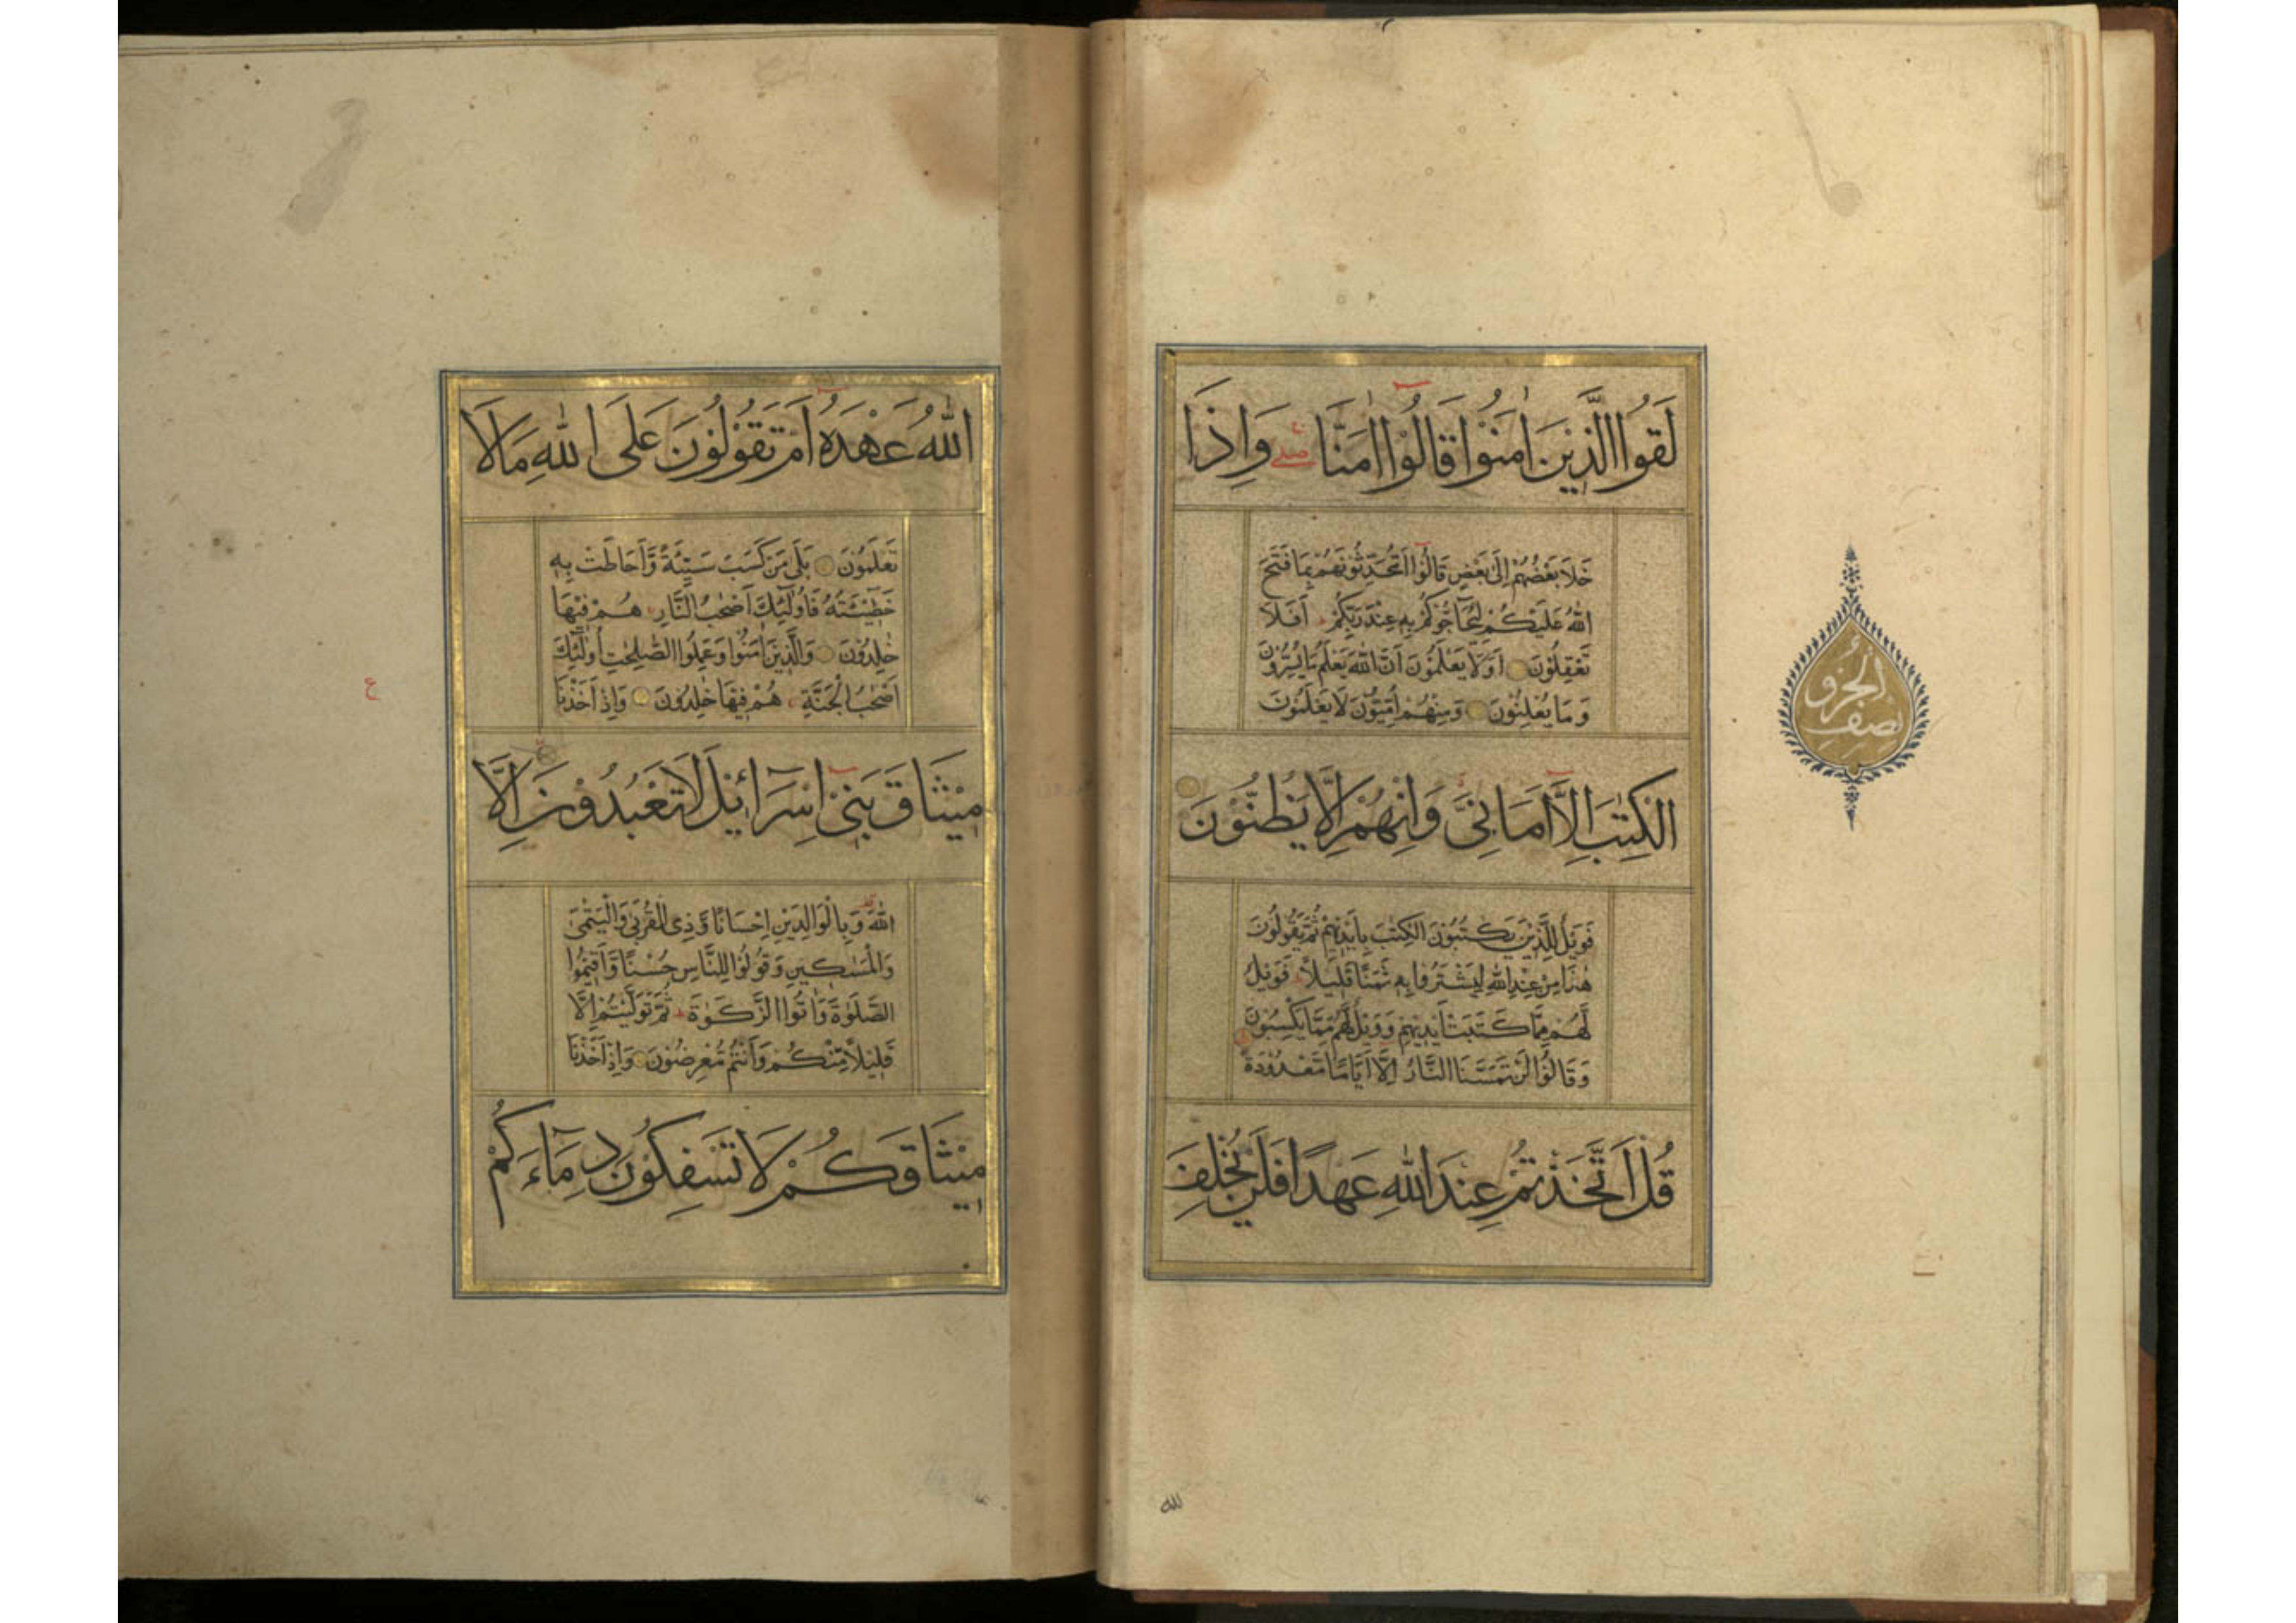 لَقُوا الَّذِيْنَ اٰمَنُوْا قَالُوْا اٰمَنَّا صلے وَاِذَا
خَلَا بَعْضُهُمْ اِلٰى بَعْضٍ قَالُوْا اَتُحَدِّثُوْنَهُمْ بِمَا فَتَحَ
اللهُ عَلَيْكُمْ لِيُحَاجُّوْكُمْ بِهٖ عِنْدَ رَبِّكُمْ اَفَلَا
تَعْقِلُوْنَ اَوَلَا يَعْلَمُوْنَ اَنَّ اللهَ يَعْلَمُ مَا يُسِرُّوْنَ
وَمَا يُعْلِنُوْنَ وَمِنْهُمْ اُمِّيُّوْنَ لَا يَعْلَمُوْنَ
الْكِتٰبَ اِلَّا اَمَانِيَّ وَاِنْ هُمْ اِلَّا يَظُنُّوْنَ
فَوَيْلٌ لِلَّذِيْنَ يَكْتُبُوْنَ الْكِتٰبَ بِاَيْدِيْهِمْ ثُمَّ يَقُوْلُوْنَ
هٰذَا مِنْ عِنْدِ اللهِ لِيَشْتَرُوْا بِهٖ ثَمَنًا قَلِيْلًا فَوَيْلٌ
لَهُمْ مِمَّا كَتَبَتْ اَيْدِيْهِمْ وَوَيْلٌ لَهُمْ مِمَّا يَكْسِبُوْنَ
وَقَالُوْا لَنْ تَمَسَّنَا النَّارُ اِلَّا اَيَّامًا مَعْدُوْدَةً
قُلْ اَتَّخَذْتُمْ عِنْدَ اللهِ عَهْدًا فَلَنْ يُخْلِفَ
نصف الجزؤ
لله
اللهُ عَهْدَهُ اَمْ تَقُوْلُوْنَ عَلَى اللهِ مَا لَا
تَعْلَمُوْنَ بَلٰى مَنْ كَسَبَ سَيِّئَةً وَاَحَاطَتْ بِهٖ
خَطِيْئَتُهُ فَاُولٰئِكَ اَصْحٰبُ النَّارِ هُمْ فِيْهَا
خٰلِدُوْنَ وَالَّذِيْنَ اٰمَنُوْا وَعَمِلُوا الصّٰلِحٰتِ اُولٰئِكَ
اَصْحٰبُ الْجَنَّةِ هُمْ فِيْهَا خٰلِدُوْنَ وَاِذْ اَخَذْنَا
مِيْثَاقَ بَنِيْ اِسْرَائِيْلَ لَا تَعْبُدُوْنَ اِلَّا
اللهَ وَبِالْوَالِدَيْنِ اِحْسَانًا وَذِى الْقُرْبٰى وَالْيَتٰمٰى
وَالْمَسٰكِيْنِ وَقُوْلُوْا لِلنَّاسِ حُسْنًا وَاَقِيْمُوا
الصَّلٰوةَ وَاٰتُوا الزَّكٰوةَ ثُمَّ تَوَلَّيْتُمْ اِلَّا
قَلِيْلًا مِنْكُمْ وَاَنْتُمْ مُعْرِضُوْنَ وَاِذْ اَخَذْنَا
مِيْثَاقَكُمْ لَا تَسْفِكُوْنَ دِمَاءَكُمْ
ع